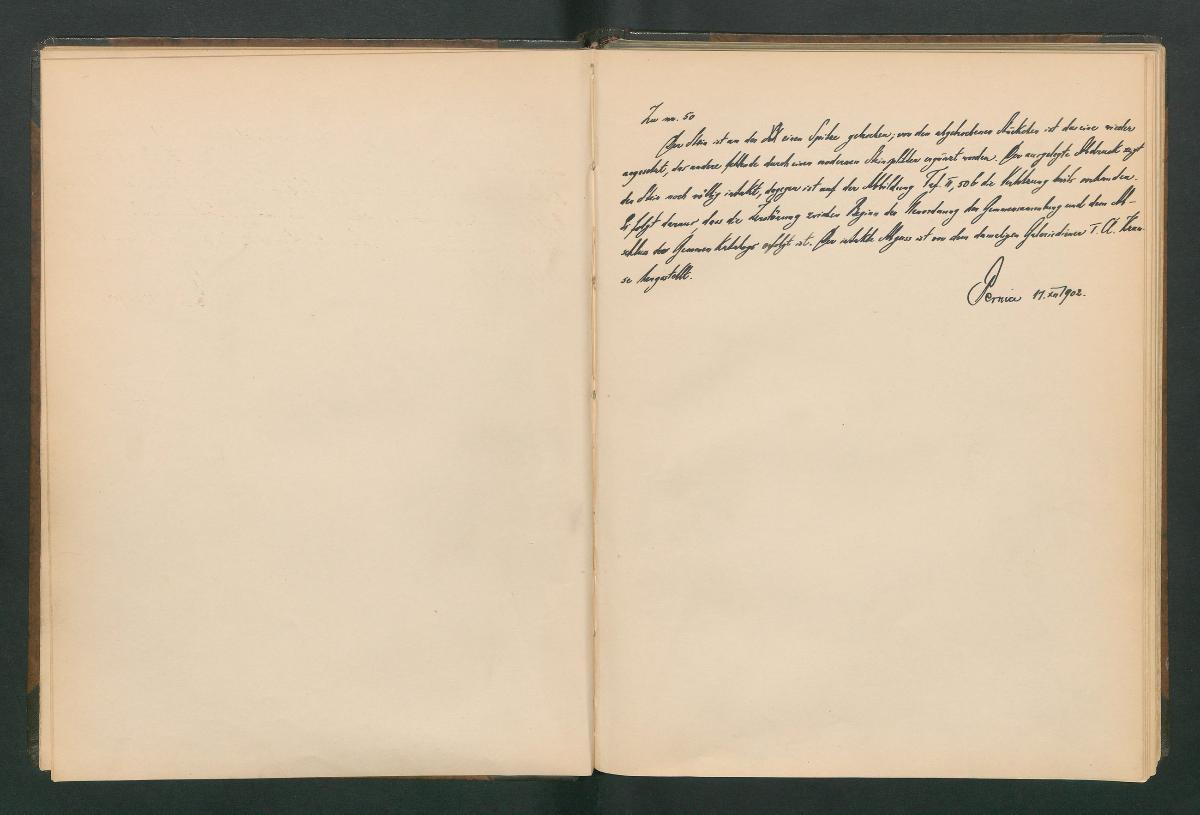 Zu nr. 50
Der Stein ist an der einen Spitze gebrochen; von den abgebrochenen Stückchen ist das eine wieder
angesetzt, das andere fehlende durch einen modernen Steinsplitter ergänzt worden. Der ausgelegte Abdruck zeigt
den Stein noch völlig intakt, dagegen ist auf der Abbildung Taf. II, 50b die Verletzung bereits vorhanden.
Es folgt daraus, dass die Zerstörung zwischen Beginn der Neuordnung der Gemmensammlung und dem Ab-
schluss des Gemmen Katalogs erfolgt ist. Der intakte Abguss ist von dem damaligen Galeriediener F. A. Krau-
se hergestellt.
Pernice 11. XII 1902.